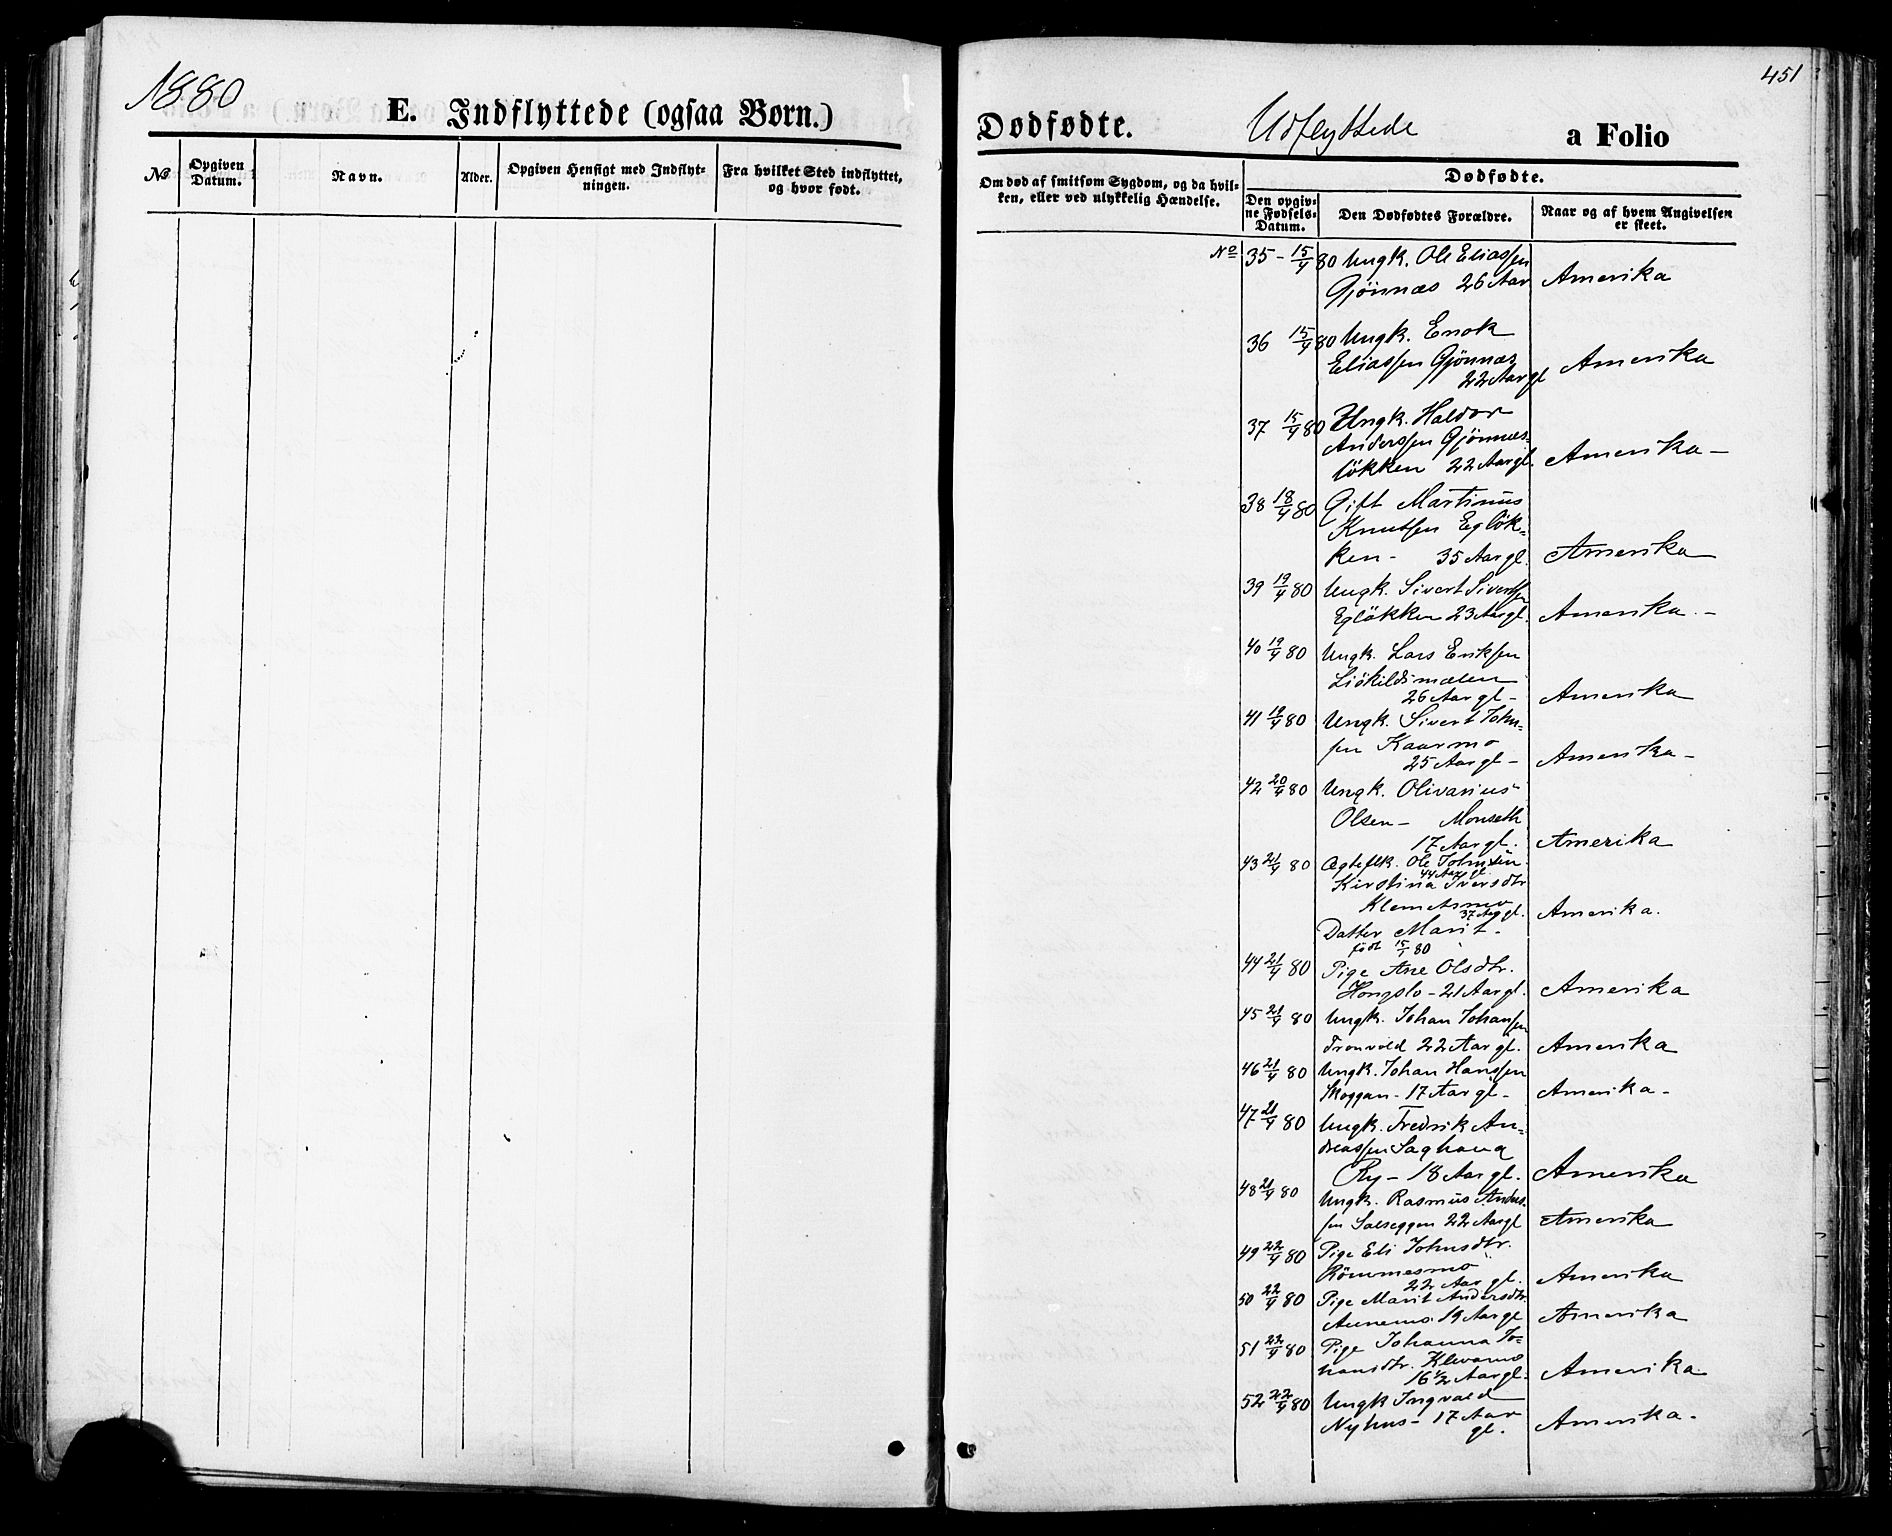 1880
E. Indflyttede (ogsaa Børn.)
No
Opgiven Datum.
Navn.
Alder.
Opgiven Hensigt med Indflyt-
ningen.
Fra hvilket Sted indflyttet,
og hvor født.
451
Dødfødte. Udflyttede a Folio
Om død af smitsom Sygdom, og da hvil-
ken, eller ved ulykkelig Hændelse.
Dødfødte.
Den opgiv-
ne Fødsels-
Datum.
Den Dødfødtes Forældre.
Naar og af hvem Angivelsen
er skeet.
No 35 - 15/4 80 Ungk. Ole Eliassen
Gjönnæs 26 Aar Amerika
36 15/4 80 Ungk. Enok
Eliassen Gjönnæs
22 Aar gl Amerika
37 15/4 80 Ungk. Haldor
Anderssen Gjönnæs-
lökken 22 Aar gl. Amerika -
38 18/4 80 Gift Martinus
Knutssen Eglök-
ken - 35 Aar gl. Amerika
39 19/4 80 Ungk. Sivert Sivertssen
Eglökken 23 Aar gl. Amerika. -
40 19/4 80 Ungk. Lars Erikssen
Liökildsmælen
26 Aar gl - Amerika
41 19/4 80 Ungk. Sivert John-
sen Kaarmo
25 Aar gl - Amerika -
42 20/4 80 Ungk. Olivarius
Olsen - Monseth
17 Aar gl. Amerika
43 21/4 80 Ægtefolk. Ole Johnsen
44 Aar gl.
Kirstina Iversdtr
Klemetsmo
37 Aar gl. Amerika.
Datter Marit -
födt 15/1 80
44 21/4 80 Pige Ane Olsdtr.
Hongslo - 21 Aar gl. Amerika
45 21/4 80 Ungk. Johan Johanssen
Tronvold 22 Aar gl. Amerika
46 21/4 80 Ungk. Johan Hanssen
Skoggan - 17 Aar gl - Amerika -
47 21/4 80 Ungk. Fredrik An-
dreassen Saghaug
Ry - 18 Aar gl. Amerika
48 21/4 80 Ungk. Rasmus Anders-
sen Salseggen 22 Aar gl Amerika
49 22/4 80 Pige Eli Johnsdtr.
Römmesmo
22 Aar gl. Amerika
50 22/4 80 Pige Marit Andersdtr.
Aunemo 19 Aar gl Amerika
51 22/4 80 Pige Johanna Jo-
hansdtr. Klevamo
16 1/2 Aar gl. Amerika
52 22/4 80 Ungk Ingvald
Nyhus - 17 Aar
gl. Amerika -